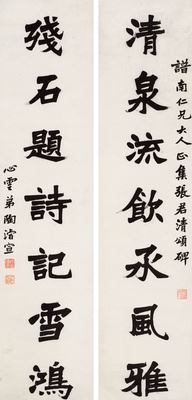 譜南仁兄大人正集張君清頌碑
清泉流飲永風雅
殘石題詩記雪鴻
心雲弟陶濬宣